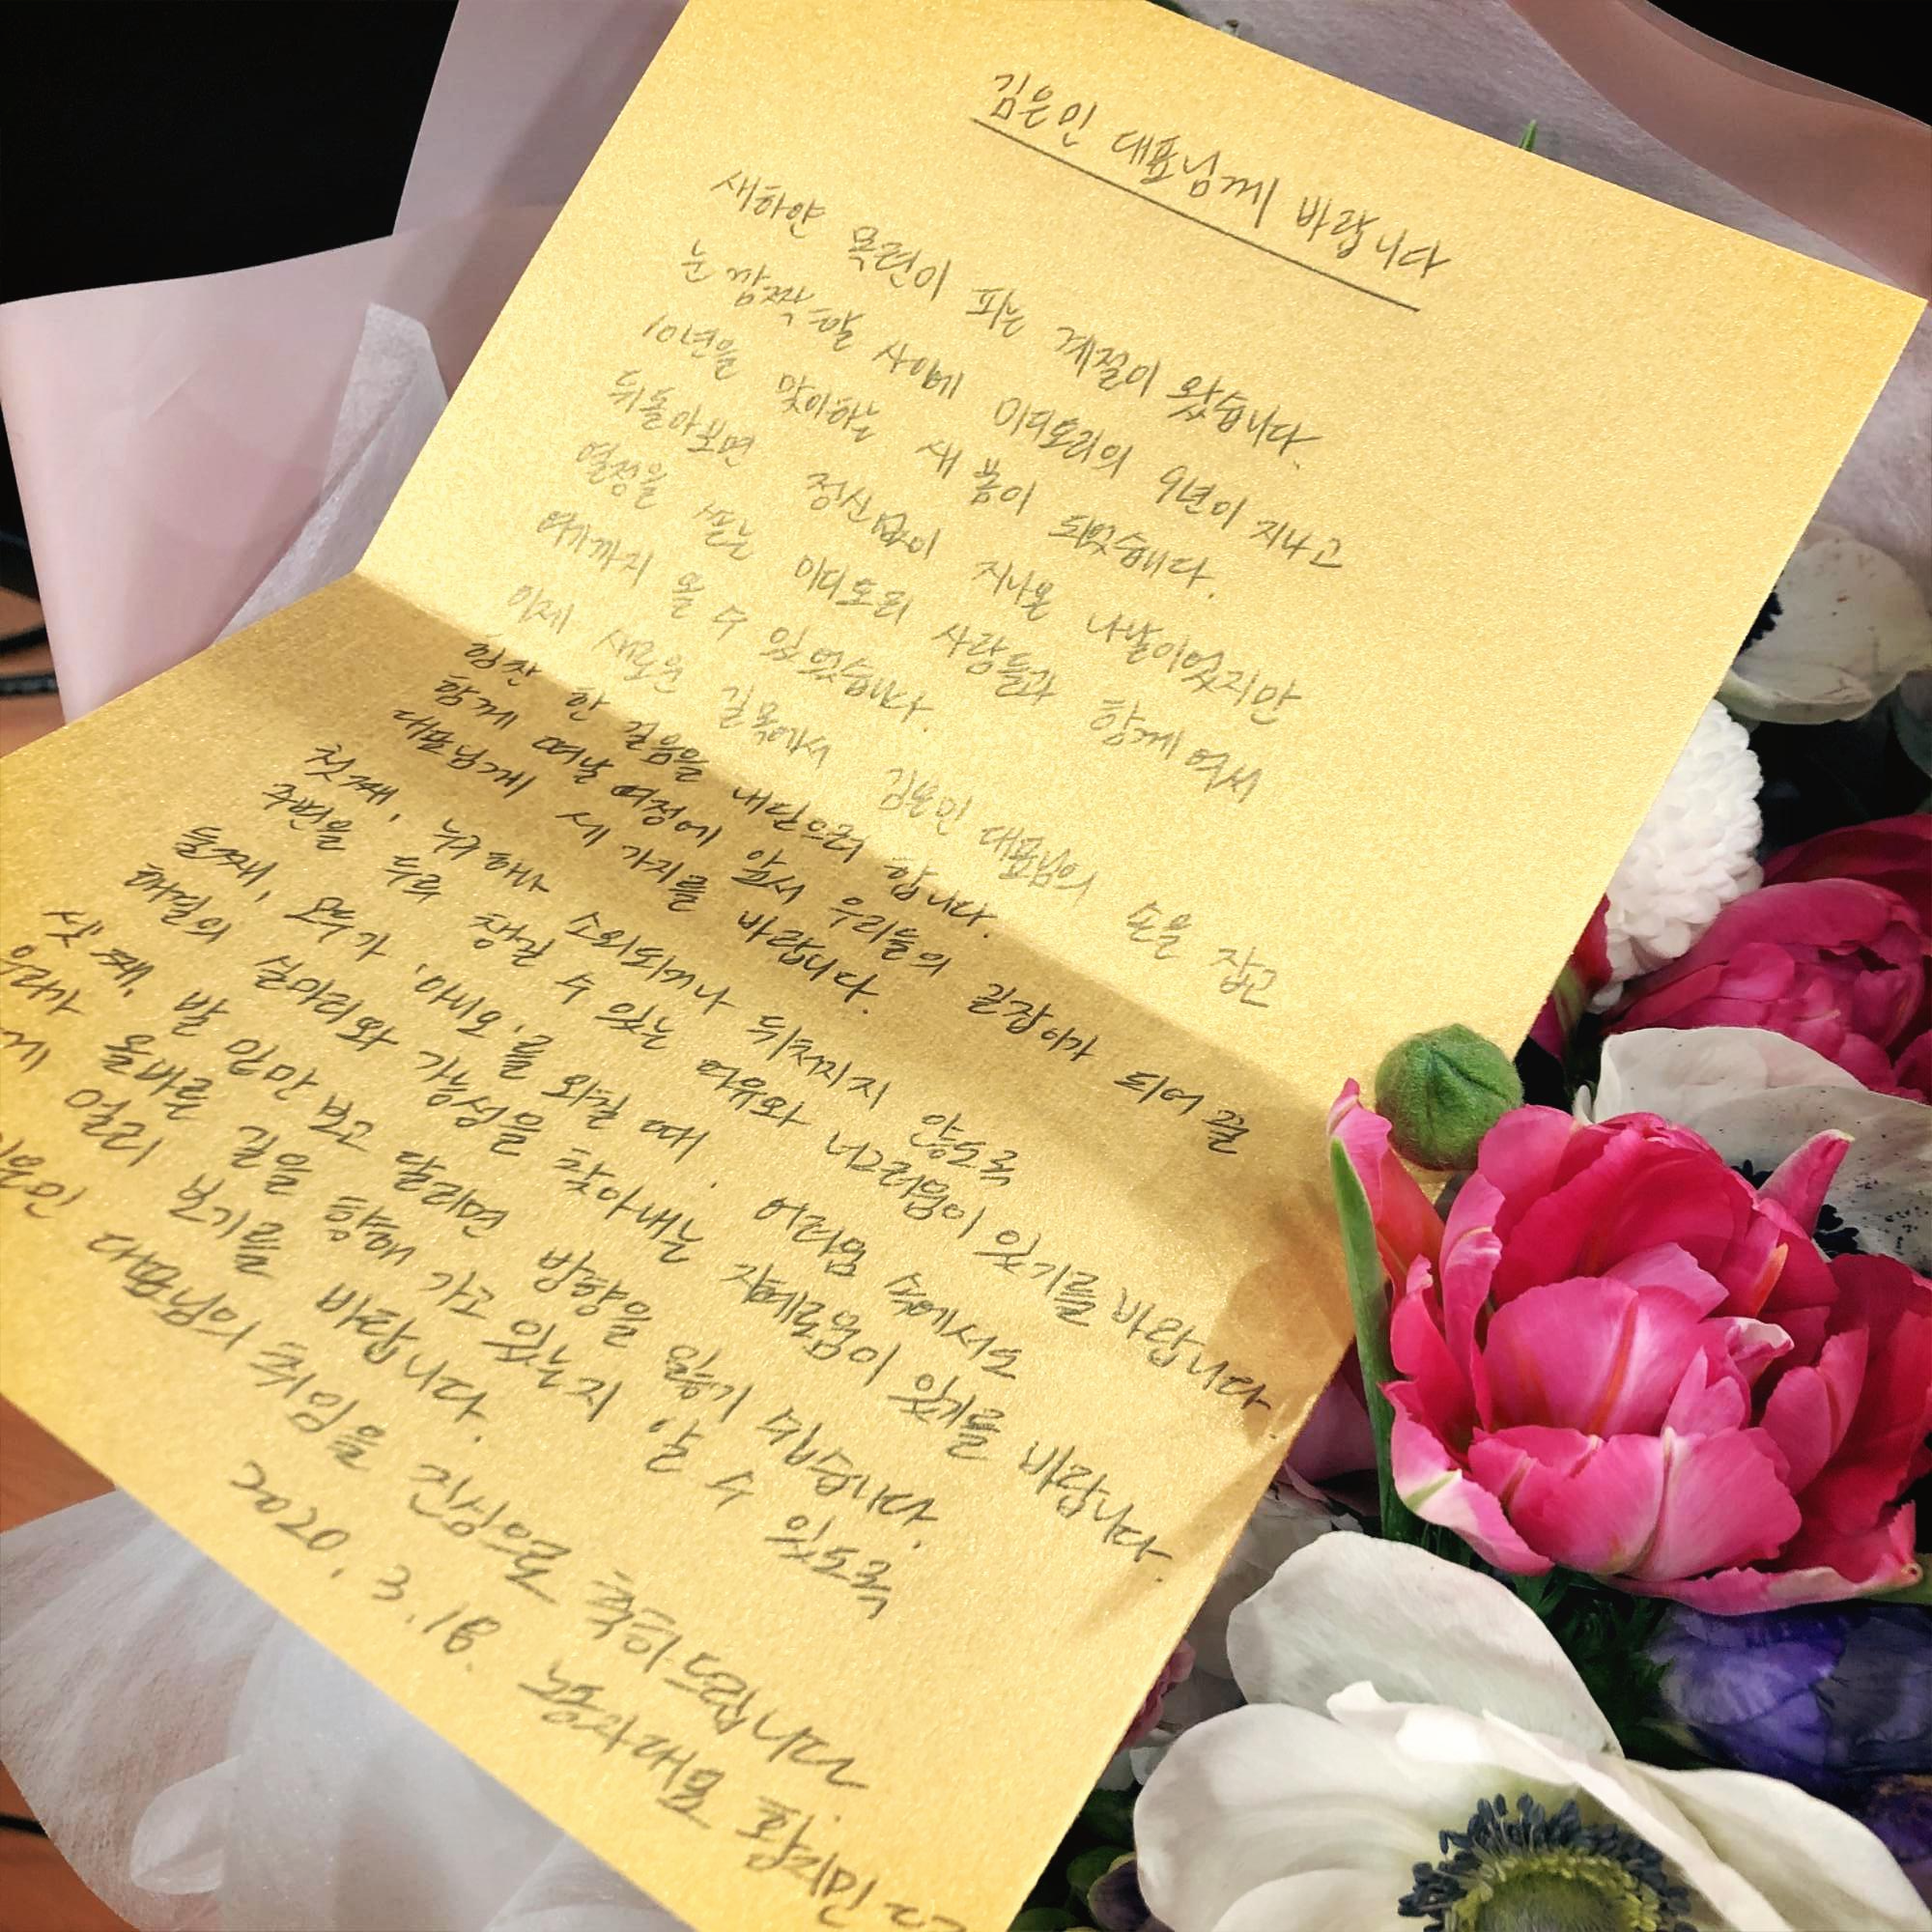 김은인 대표님께 바랍니다
새하얀 목련이 피는 계절이 왔습니다.
눈 깜짝할 사이에 미디토리의 9년이 지나고
10년을 맞이하는 새 봄이 되었습니다.
뒤돌아보면 정신없이 지나온 나날이었지만
열정을 쏟는 미디토리 사람들과 함께여서
여기까지 올 수 있었습니다.
이제 새로운 길목에서 김은민 대표님의 손을 잡고
힘찬 한 걸음을 내딛으려 합니다.
함께 떠날 여정에 앞서 우리들의 길잡이가 되어 줄
대표님께 세 가지를 바랍니다.
첫째, 누구 하나 소외되거나 뒤쳐지지 않도록
주변을 두루 챙길 수 있는 여유와 너그러움이 있기를 바랍니다
둘째, 모두가 '아니오'를 외칠 때, 어려움 속에서도
해결의 실마리와 가능성을 찾아내는 지혜로움이 있기를 바랍니다
셋째, 발 밑만 보고 달리면 방향을 잃기 쉽습니다.
우리가 올바른 길을 향해 가고 있는지 알 수 있도록
멀리 보기를 바랍니다.
대표님의 취임을 진심으로 축하드립니다
2020. 3. 18.